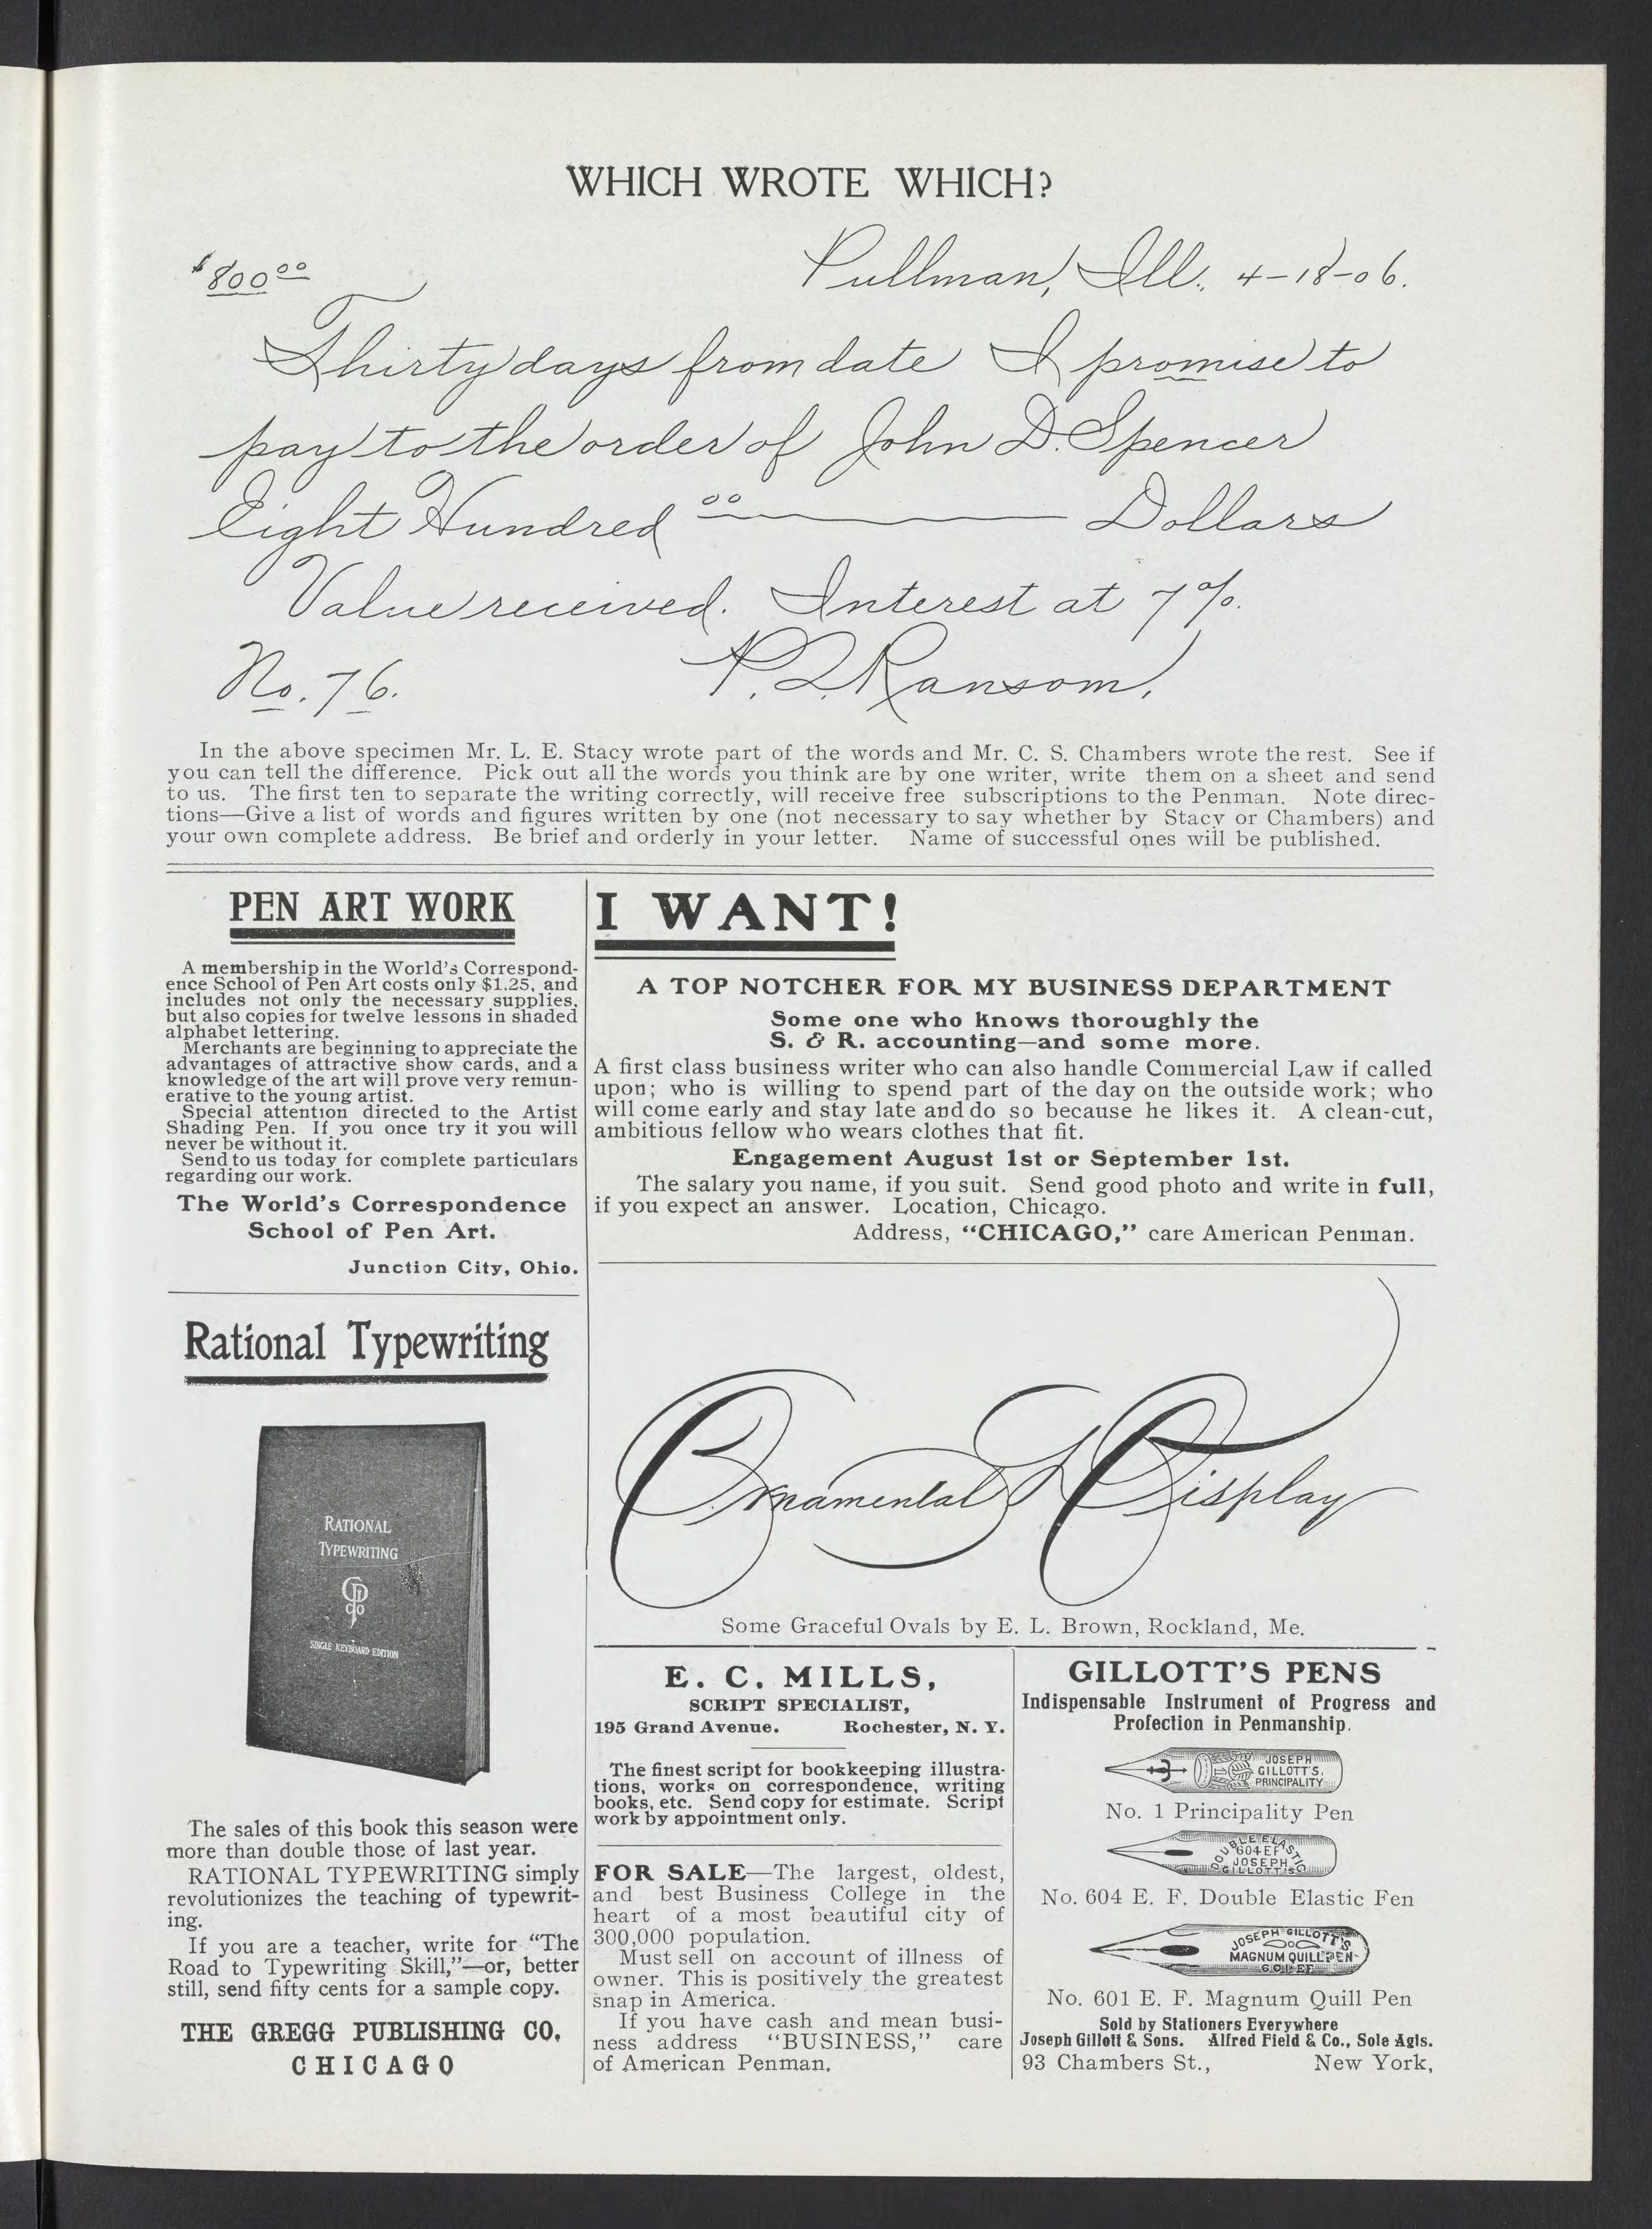 WHICH WROTE WHICH?
$800 00
Pullman, Ill. 4-18-06.
Thirty days from date I promise to
pay to the order of John D. Spencer
Eight Hundred 00 Dollars
Value received. Interest at 7%.
No. 76. P. D. Ransom.
In the above specimen Mr. L. E. Stacy wrote part of the words and Mr. C. S. Chambers wrote the rest. See if
you can tell the difference. Pick out all the words you think are by one writer, write them on a sheet and send
to us. The first ten to separate the writing correctly, will receive free subscriptions to the Penman. Note direc-
tions—Give a list of words and figures written by one (not necessary to say whether by Stacy or Chambers) and
your own complete address. Be brief and orderly in your letter. Name of successful ones will be published.
PEN ART WORK
A membership in the World's Correspond-
ence School of Pen Art costs only $1.25, and
includes not only the necessary supplies,
but also copies for twelve lessons in shaded
alphabet lettering.
Merchants are beginning to appreciate the
advantages of attractive show cards, and a
knowledge of the art will prove very remun-
erative to the young artist.
Special attention directed to the Artist
Shading Pen. If you once try it you will
never be without it.
Send to us today for complete particulars
regarding our work.
The World's Correspondence
School of Pen Art.
Junction City, Ohio.
Rational Typewriting
RATIONAL
TYPEWRITING
SINGLE KEYBOARD EDITION
The sales of this book this season were
more than double those of last year.
RATIONAL TYPEWRITING simply
revolutionizes the teaching of typewrit-
ing.
If you are a teacher, write for "The
Road to Typewriting Skill,"—or, better
still, send fifty cents for a sample copy.
THE GREGG PUBLISHING CO.
CHICAGO
I WANT!
A TOP NOTCHER FOR MY BUSINESS DEPARTMENT
Some one who knows thoroughly the
S. & R. accounting—and some more.
A first class business writer who can also handle Commercial Law if called
upon; who is willing to spend part of the day on the outside work; who
will come early and stay late and do so because he likes it. A clean-cut,
ambitious fellow who wears clothes that fit.
Engagement August 1st or September 1st.
The salary you name, if you suit. Send good photo and write in full,
if you expect an answer. Location, Chicago.
Address, "CHICAGO," care American Penman.
Ornamental Display
Some Graceful Ovals by E. L. Brown, Rockland, Me.
E. C. MILLS,
SCRIPT SPECIALIST,
195 Grand Avenue. Rochester, N. Y.
The finest script for bookkeeping illustra-
tions, works on correspondence, writing
books, etc. Send copy for estimate. Script
work by appointment only.
FOR SALE—The largest, oldest,
and best Business College in the
heart of a most beautiful city of
300,000 population.
Must sell on account of illness of
owner. This is positively the greatest
snap in America.
If you have cash and mean busi-
ness address "BUSINESS," care
of American Penman.
GILLOTT'S PENS
Indispensable Instrument of Progress and
Profection in Penmanship.
JOSEPH
GILLOTT'S,
PRINCIPALITY
No. 1 Principality Pen
DOUBLE ELASTIC
604 EF
JOSEPH
GILLOTT'S
No. 604 E. F. Double Elastic Fen
JOSEPH GILLOTT'S
MAGNUM QUILL PEN
601 EF
No. 601 E. F. Magnum Quill Pen
Sold by Stationers Everywhere
Joseph Gillott & Sons. Alfred Field & Co., Sole Agts.
93 Chambers St., New York,